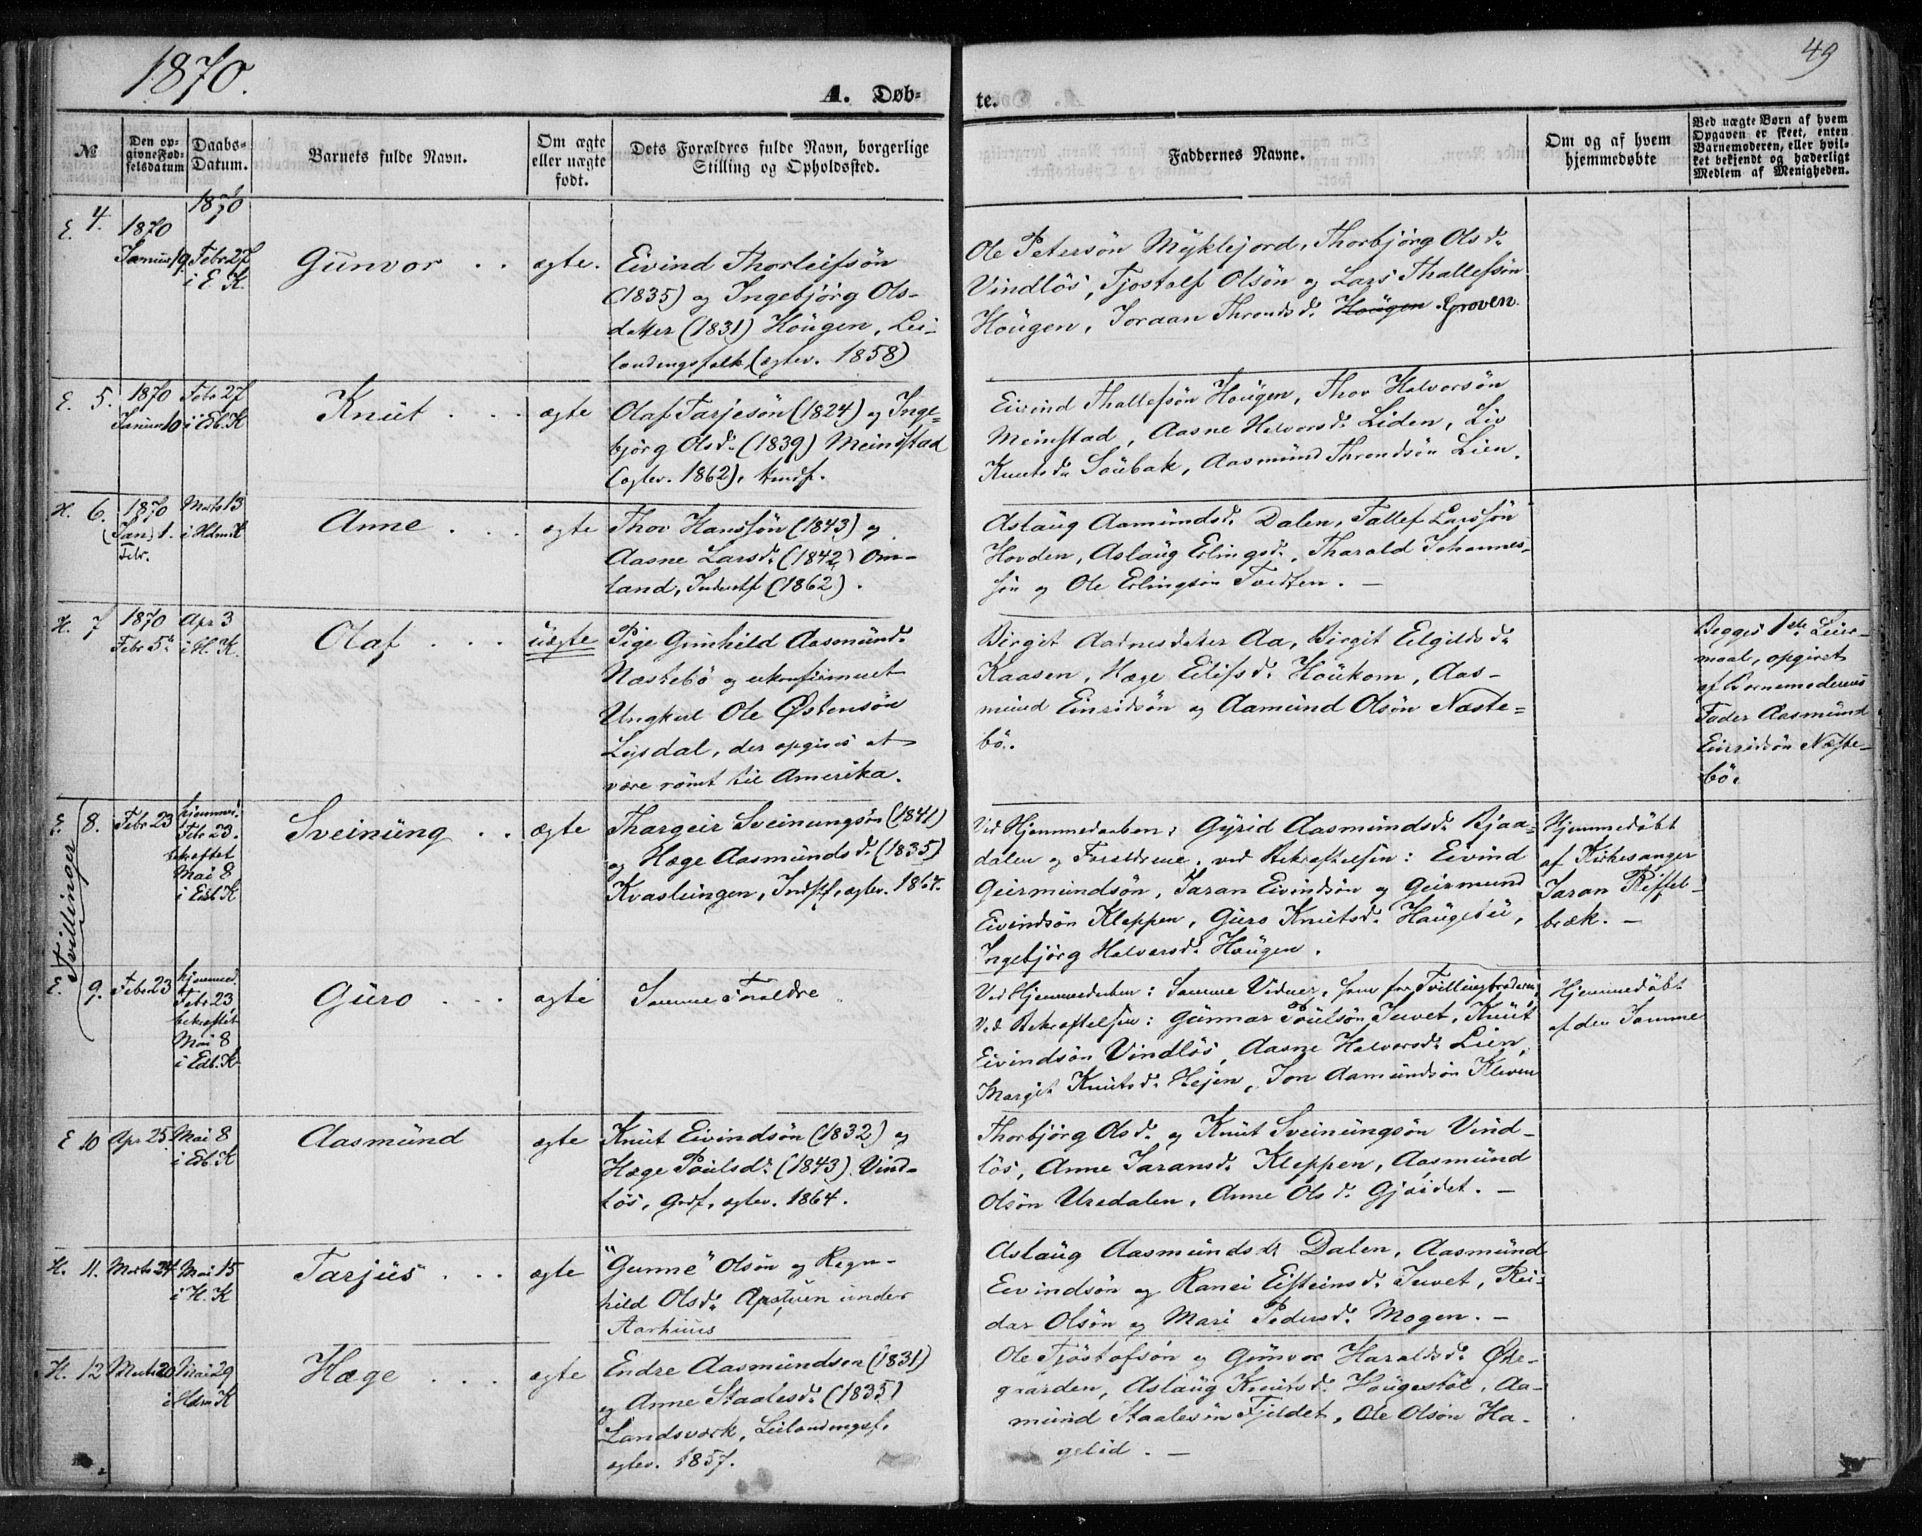 1870.
49
A. Døb-
te.
№
Den op-
givne Fød-
selsdatum
Daabs-
Datum.
Barnets fulde Navn.
Om ægte
eller uægte
født.
Dets Forældres fulde Navn, borgerlige
Stilling og Opholdssted.
Faddernes Navne.
Om og af hvem
hjemmedøbte
Ved uægte Børn af hvem
Opgaven er skeet, enten
Barnemoderen, eller hvil-
ket bekjendt og hæderligt
Medlem af Menigheden.
E. 4.
1870
Januar 19
1870
Febr 27
i E. K.
Gunvor . .
ægte.
Eivind Thorleifsøn
(1835) og Ingebjörg Ols-
datter (1831) Hougen, Lei-
lændingsfolk (ægtev. 1858)
Ole Petersøn Myklejord, Thorbjørg Olsd.
Vindlös, Tjostolf Olsøn og Lars Thallefsøn
Hougen, Joraan Throndsd. Hougen Groven
E. 5.
1870
Januar 10
Febr 27
i Eb. K
Knut . . .
ægte
Olaf Tarjesøn (1824) og Inge-
bjørg Olsd. (1839) Meinstad
(ægtev. 1862),
Eivind Thallefsøn Hougen, Thov Halvorsøn
Meinstad, Aasne Halvorsd. Liden, Liv
Knutsd. Soubak, Aasmund Throndsøn Lien.
H. 6.
1870
(Jan) 1.
Febr.
Marts 13
i Hdm K
Anne . . .
ægte
Thov Hanssøn (1843) og
Aasne Larsd. (1842) Om-
land, Inderstf (1862).
Aslaug Aamundsd. Dalen, Tallef Larssøn
Hovden, Aslaug Erlingsd., Tharald Johannes-
søn og Ole Erlingsøn Tvedten. —
H. 7
1870
Febr 5te
Apr 3
i H. K.
Olaf . . .
uægte
Pige Gunhild Aasmundd.
Næstebö og ukonfirmeret
Ungkarl Ole Østensøn
Lijsdal, der opgives at
være rømt til Amerika.
Birgit Aadnesdatter Aa, Birgit Eilgildsd.
Kaasen, Hæge Eilifsd. Houkom, Aas-
mund Einridsøn og Aamund Olsøn Næste-
bö.
Begges 1ste Leier-
maal, opgivet
af Barnemoderens
Fader Aasmund
Einridsøn Næste-
bö.
Tvillinger
E. 8.
Febr 23
hjemme.
Febr 23.
bekræftet
Mai 8
i Eidb. K
Sveinung . .
ægte
Thargeir Sveinungsøn (1841)
og Hæge Aasmundsd. (1835)
Kvaslingen, Indstf, ægtev. 1867.
Ved Hjemmedaaben: Gyrid Aasmundsd. Bjaa-
dalen og Forældrene. ved Bekræftelsen: Eivind
Geirmundsøn, Jaran Eivindsøn og Geirmund
Eivindsøn Kleppen, Guro Knutsd. Haugesu,
Ingebjørg Halvorsd. Hougen.
Hjemmedøbt
af Kirkesanger
Jaran Riffel-
bræk. —
E. 9.
Febr 23
hjemmed.
Febr 23
bekræftet
Mai 8
i Edb. K.
Guro . . .
ægte
Samme Forældre
Ved Hjemmedaaben: Samme Vidner, som for Tvillingbroderen.
Ved Bekræftelsen: Gunnar Poulsøn Juvet, Knut
Eivindsøn Vindlös, Aasne Halvorsd. Lien,
Margit Knutsd. Hejen, Jon Aamundsøn Kleven
Hjemmedøbt
af den Samme
E 10
Apr 25
Mai 8
i Eb. K
Aasmund
ægte
Knut Eivindsøn (1832) og
Hæge Poulsd. (1843) Vind-
lös, Grdf, ægtev. 1864.
Thorbjörg Olsd. og Knut Sveinungsøn Vind-
lös, Anne Jaransd. Kleppen, Aasmund
Olsøn Uredalen, Anne Olsd. Gjøidet. —
H. 11.
Marts 24
Mai 15
i H. K
Tarjus . . .
ægte
"Gunne" Olsøn og Regn-
hild Olsd. Opstuen under
Aarhuus
Aslaug Aasmundsd. Dalen, Aasmund
Eivindsøn og Ranei Eisteinsd. Juvet, Rei-
dar Olsøn og Mari Pedersd. Mogen. —
H. 12
Marts 20
Mai 29
i Hdm K
Hæge . . .
ægte
Endre Aasmundsen (1831)
og Anne Staalesd. (1835)
Landsværk, Leilændingsf.
ægtev. 1857.
Ole Tjöstofsøn og Gunvor Haraldsd. Øke-
gaarden, Aslaug Knutsd. Hougestöl, Aa-
mund Staalesøn Fjeldet, Ole Olsøn Ha-
gelid. —